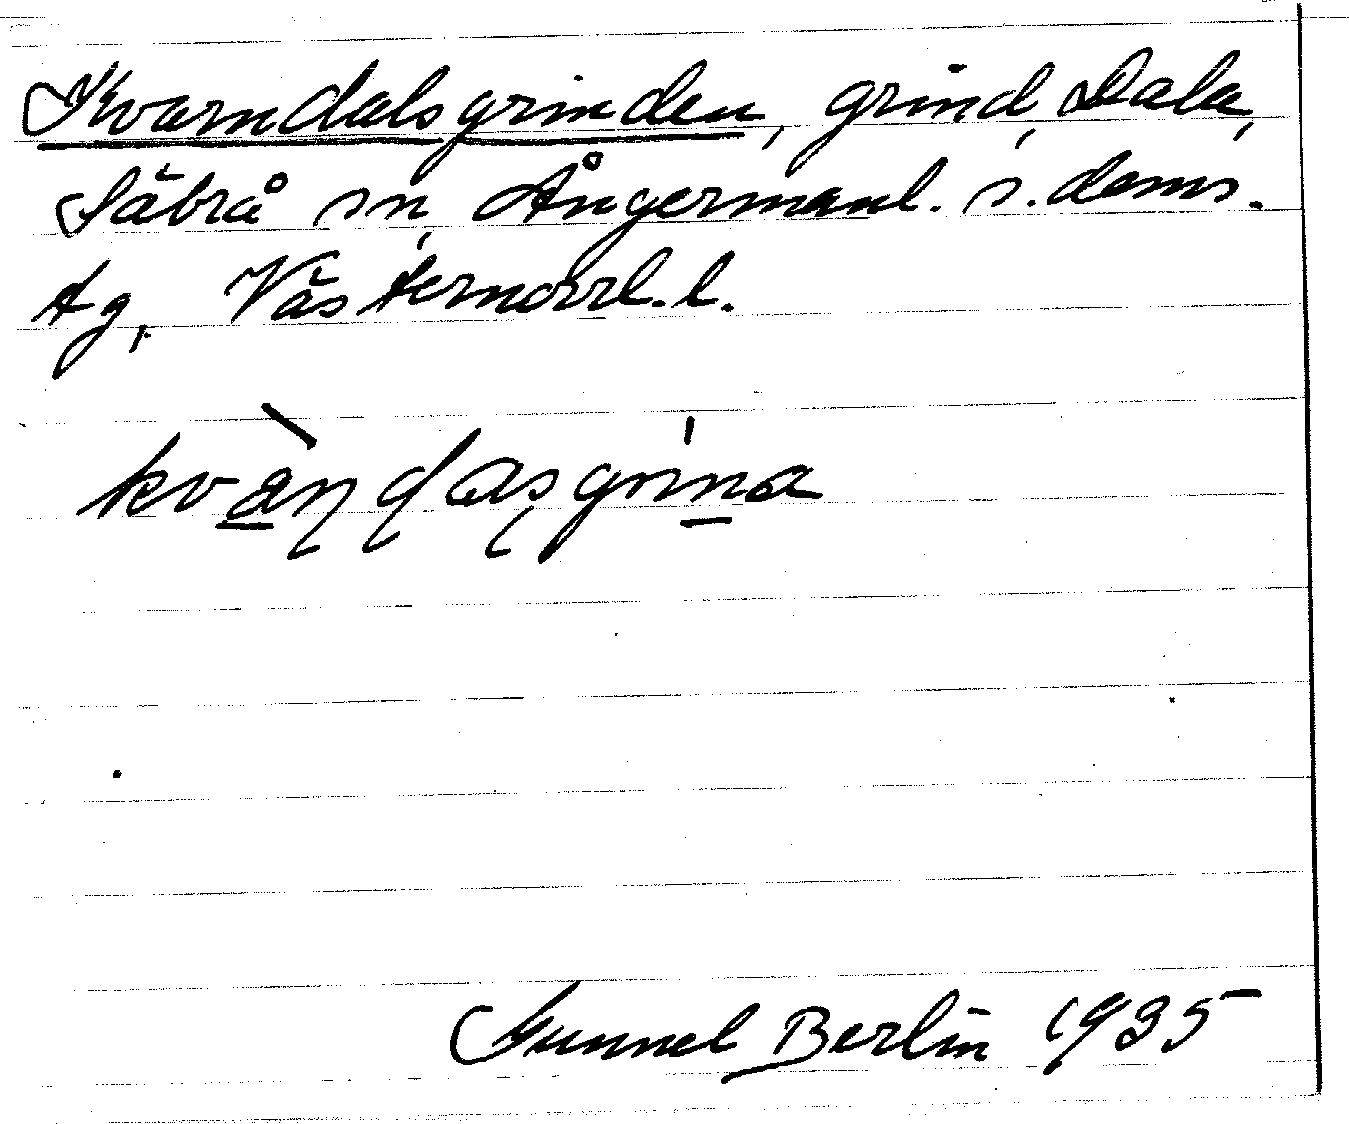 Kvarndalsgrinden, grind, Dala,
Säbrå sn, Ångermanl. s. doms.
tg, Västernorrl. l.
kvàɳɖaʂgrina
Gunnel Berlin 1935